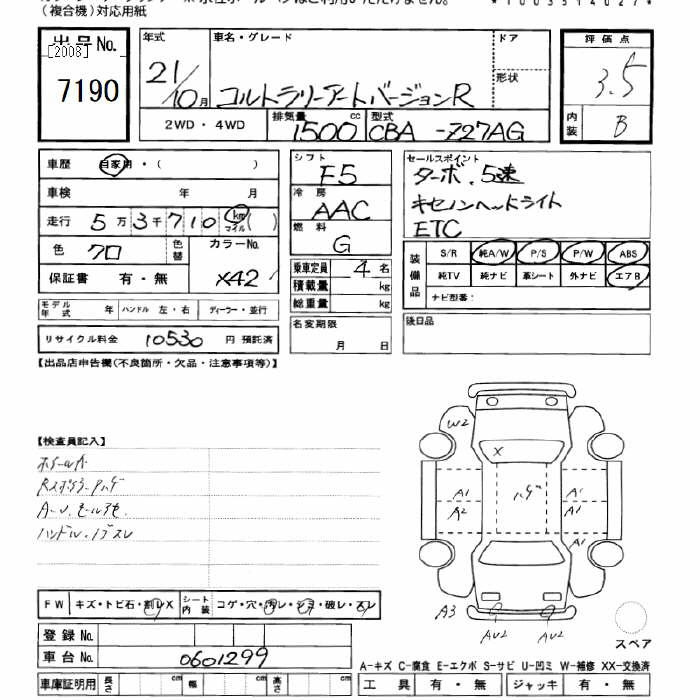 (複合機)対応用紙
出品No.
[2008]
7190
年式 21/10月
車名・グレード コルトラリーアートバージョンR
ドア
形状
2WD・4WD
排気量 1500 cc
型式 CBA-Z27AG
評価点 3.5
内装 B
車歴 自家用・( )
車検 年 月
走行 5万3千710 km マイル ( )
色 クロ
色替
カラーNo. X42
保証書 有・無
モデル年式 年
ハンドル 左・右
ディーラー・並行
リサイクル料金 10530 円 預託済
シフト F5
冷房 AAC
燃料 G
乗車定員 4 名
積載量 kg
総重量 kg
名変期限
月 日
セールスポイント
ターボ.5速
キセノンヘッドライト
ETC
装備品
S/R 純A/W P/S P/W ABS
純TV 純ナビ 革シート 外ナビ エアB
ナビ型番:
後日品
【出品店申告欄(不良箇所・欠品・注意事項等)】
【検査員記入】
ハンドル・
W2
X
A1
A2
ハゲ
A1
A1
A3
AU2
AU2
スペア
FW キズ・トビ石・割レX
シート内装 コゲ・穴・汚レ・シミ・破レ・スレ
登録No.
車台No. 0601299
車庫証明用 長さ cm 幅 cm 高さ cm
A-キズ C-腐食 E-エクボ S-サビ U-凹ミ W-補修 XX-交換済
工具 有・無 ジャッキ 有・無